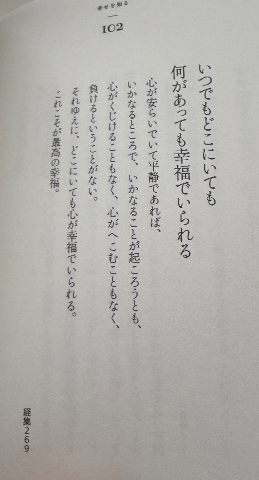 幸せを知る
102
いつでもどこにいても
何があっても幸福でいられる
心が安らいでいて平静であれば、
いかなるところで、いかなることが起ころうとも、
心がくじけることもなく、心がへこむこともなく、
負けるということがない。
それゆえに、どこにいても心が幸福でいられる。
これこそが最高の幸福。
経集269